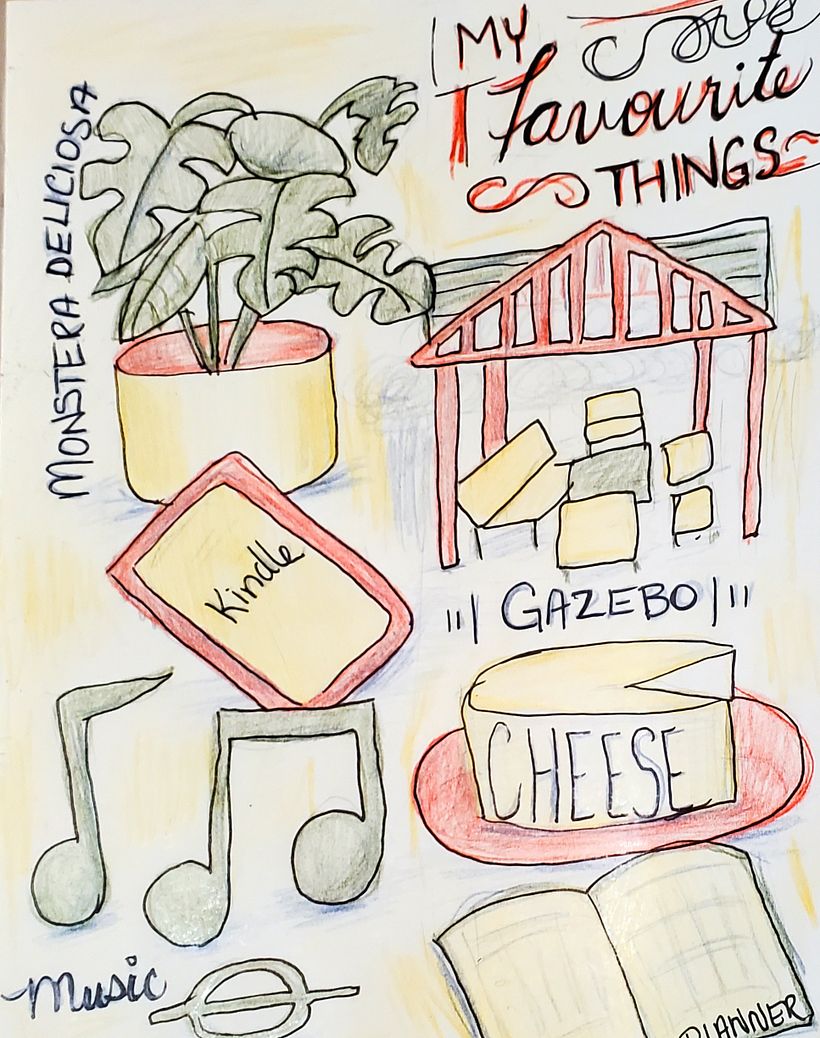 MY
favourite
THINGS
MONSTERA DELICIOSA
Kindle
GAZEBO
CHEESE
Music
PLANNER